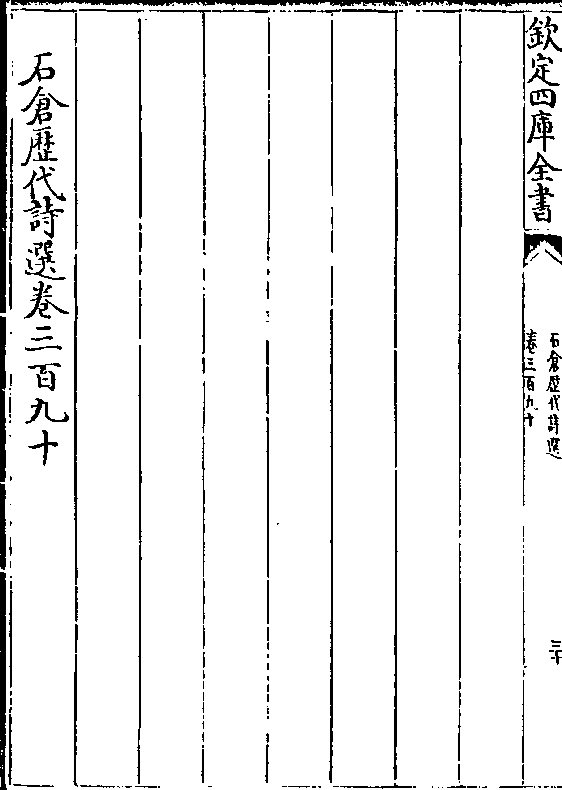 欽定四庫全書
石倉歴代詩選
卷三百九十
三十
石倉歴代詩選卷三百九十